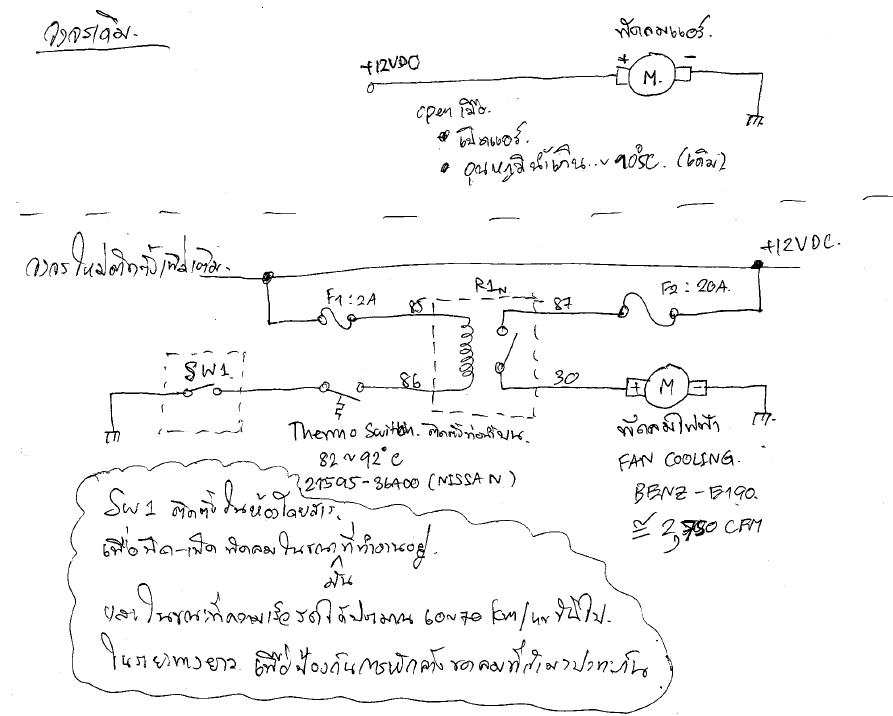 วงจรเดิม.
พัดลมแอร์.
+12VDC
+ M. -
open เมื่อ.
• เปิดแอร์.
• อุณหภูมิน้ำเกิน..~ 90°C. (เดิม)
วงจรใหม่ติดตั้งเพิ่มเติม.
+12VDC.
F1:2A
85
R1
87
F2:20A.
SW1
86
30
+ M -
Thermo Switch. ติดตั้งท่อน้ำบน.
82~92°C
21595-36A00 (NISSAN)
พัดลมไฟฟ้า
FAN COOLING.
BENZ-E190.
≅ 2,750 CFM
SW1 ติดตั้งในห้องโดยสาร.
เพื่อปิด-เปิด พัดลมในขณะที่มันทำงานอยู่.
ในขณะที่ความเร็วรถ 60~70 km/hr ขึ้นไป.
ในระยะทางยาว เพื่อป้องกันการ ของลมที่ ปะทะกัน